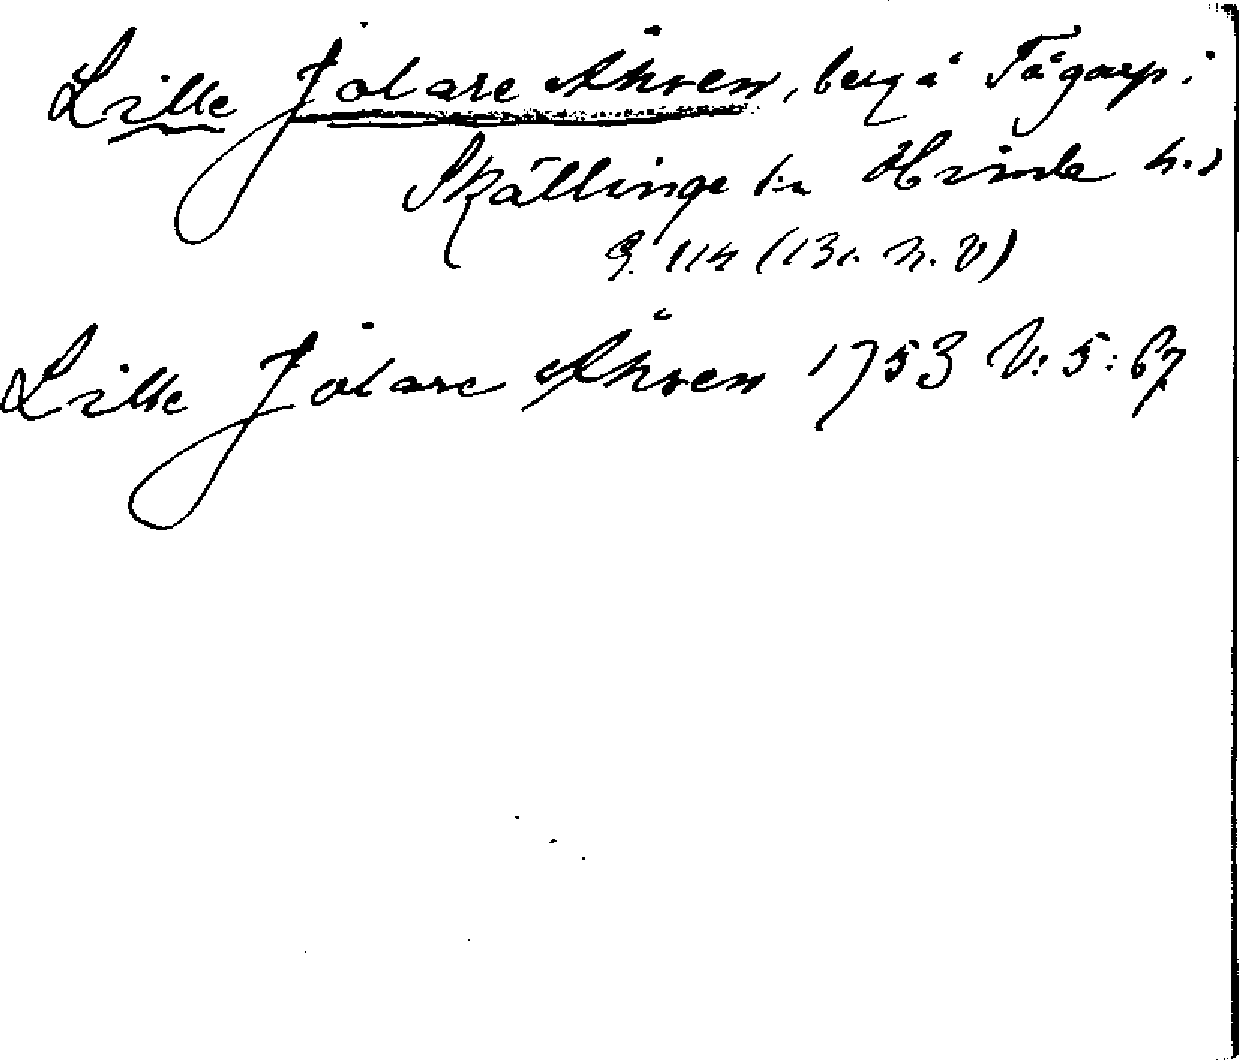 Lille Jolare Åhren, berg å Tågarp i
Skällinge sn Himle hd
G. 114 (131. N. V)
Lille Jolare Åhren 1753 V: 5: 67